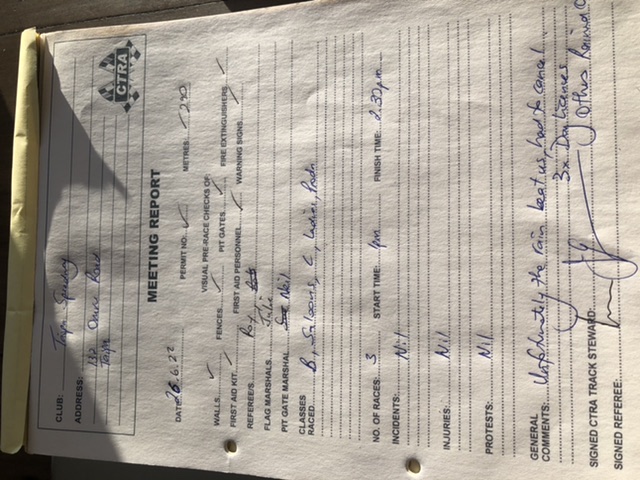 CTRA
CLUB: Taipa Speedway
ADDRESS: 132 Road
Taipa
MEETING REPORT
DATE: 26.6.22 PERMIT NO. ✓ METRES:
VISUAL PRE-RACE CHECKS OF:
WALLS ✓ FENCES ✓ PIT GATES ✓ FIRE EXTINGUISHERS ✓
FIRST AID KIT ✓ FIRST AID PERSONNEL ✓ WARNING SIGNS ✓
REFEREE/S: Ray
FLAG MARSHALS: Julie
PIT GATE MARSHAL Neil
CLASSES
RACED: B, Saloons, C, Ladies, Prods
NO. OF RACES: 3 START TIME: 1pm FINISH TIME: 2.30pm
INCIDENTS: Nil
INJURIES: Nil
PROTESTS: Nil
GENERAL
COMMENTS: Unfortunately the rain beat us, had to cancel
3x Day Licences
SIGNED CTRA TRACK STEWARD:
SIGNED REFEREE: